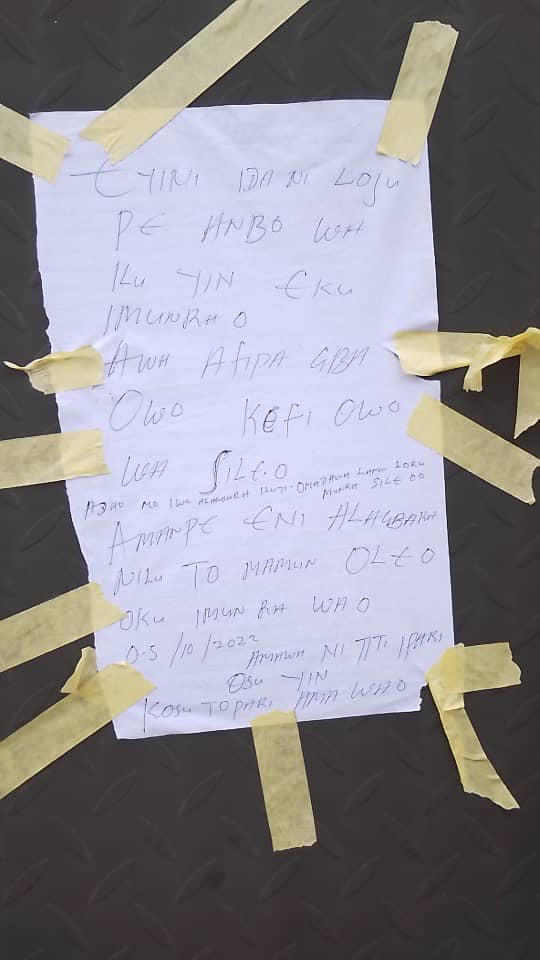 EYINI IDA NI LOJU
PE ANBO WA
ILU YIN EKU
IMUNRA O
AWA AFIPA GBA
OWO KEFI OWO
WA SILE.O
MO IWO ALAGBARA ILUTI. OMADAWA LAMU LORU
MUNRA SILE OO
AMANPE ENI ALAGBARA
NILU TO MAMUN OLE O
OKU IMUN RA WA O
05/10/2022
AMAWA NI TITI IPARI
OSU YIN
KOSU TOPARI AMA WAO